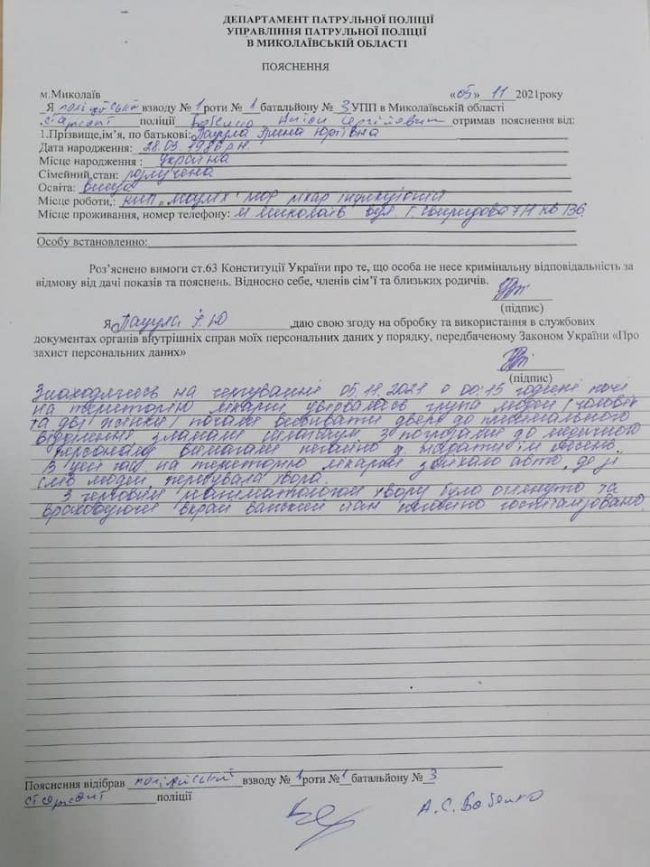 ДЕПАРТАМЕНТ ПАТРУЛЬНОЇ ПОЛІЦІЇ
УПРАВЛІННЯ ПАТРУЛЬНОЇ ПОЛІЦІЇ
В МИКОЛАЇВСЬКІЙ ОБЛАСТІ
ПОЯСНЕННЯ
м.Миколаїв «05» 11 2021року
Я поліцейський взводу № 1 роти № 1 батальйону № 3 УПП в Миколаївській області
сержант поліції отримав пояснення від:
1.Прізвище,ім'я, по батькові: Юріївна
Дата народження: 28.03.1986 р.н.
Місце народження: Україна
Сімейний стан: розлучена
Освіта: вища
Місце роботи,: лікар
Місце проживання, номер телефону: м Миколаїв вул кв 136
Особу встановлено:
Роз'яснено вимоги ст.63 Конституції України про те, що особа не несе кримінальну відповідальність за
відмову від дачі показів та пояснень. Відносно себе, членів сім'ї та близьких родичів.
(підпис)
Я ,даю свою згоду на обробку та використання в службових
документах органів внутрішніх справ моїх персональних даних у порядку, передбаченому Законом України «Про
захист персональних даних»
(підпис)
Знаходячись на чергуванні 05.11.2021 о 00:15 годині ночі
на територію лікарні увірвалась група людей (чоловік
та дві жінки) почали вибивати двері до
відділення, зламали З погрозами до медичного
персоналу вимагали негайно видати їм
В цей час на територію лікарні заїхало авто, де зі
слів людей, перебувала хвора.
З черговим хвору було оглянуто та
враховуючи вкрай важкий стан негайно госпіталізовано
Пояснення відібрав поліцейський взводу № 1 роти № 1 батальйону № 3
сержант поліції
А.С. Бабенко